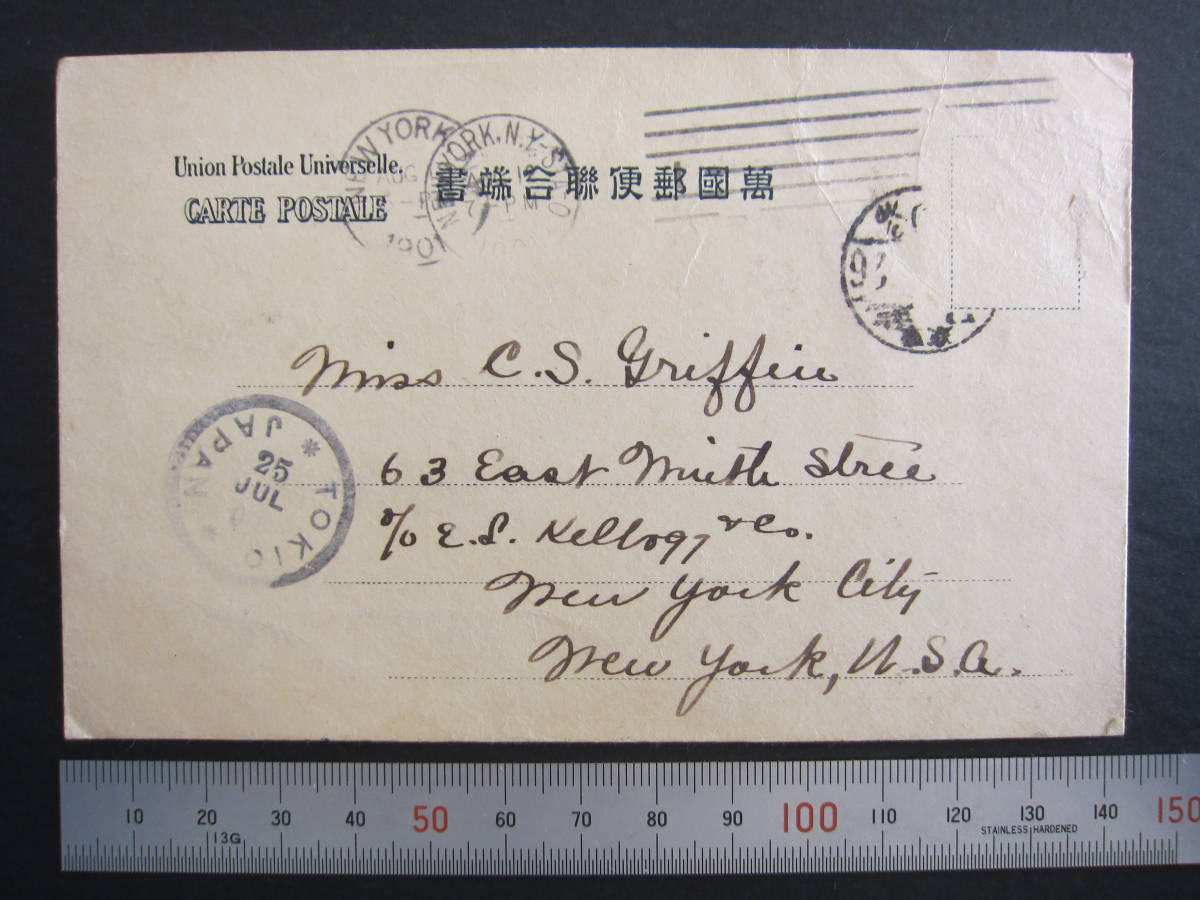 NEW YORK
AUG
1901
YORK, N.Y.
PM
Union Postale Universelle.
CARTE POSTALE
書端合聯便郵國萬
Miss C. S. Griffin
63 East Ninth Stree
c/o E. S. Kellogg & Co.
New York City
New York, U.S.A.
TOKIO
JAPAN
25
JUL
10 20 30 40 50 60 70 80 90 100 110 120 130 140 150
13G
STAINLESS HARDENED